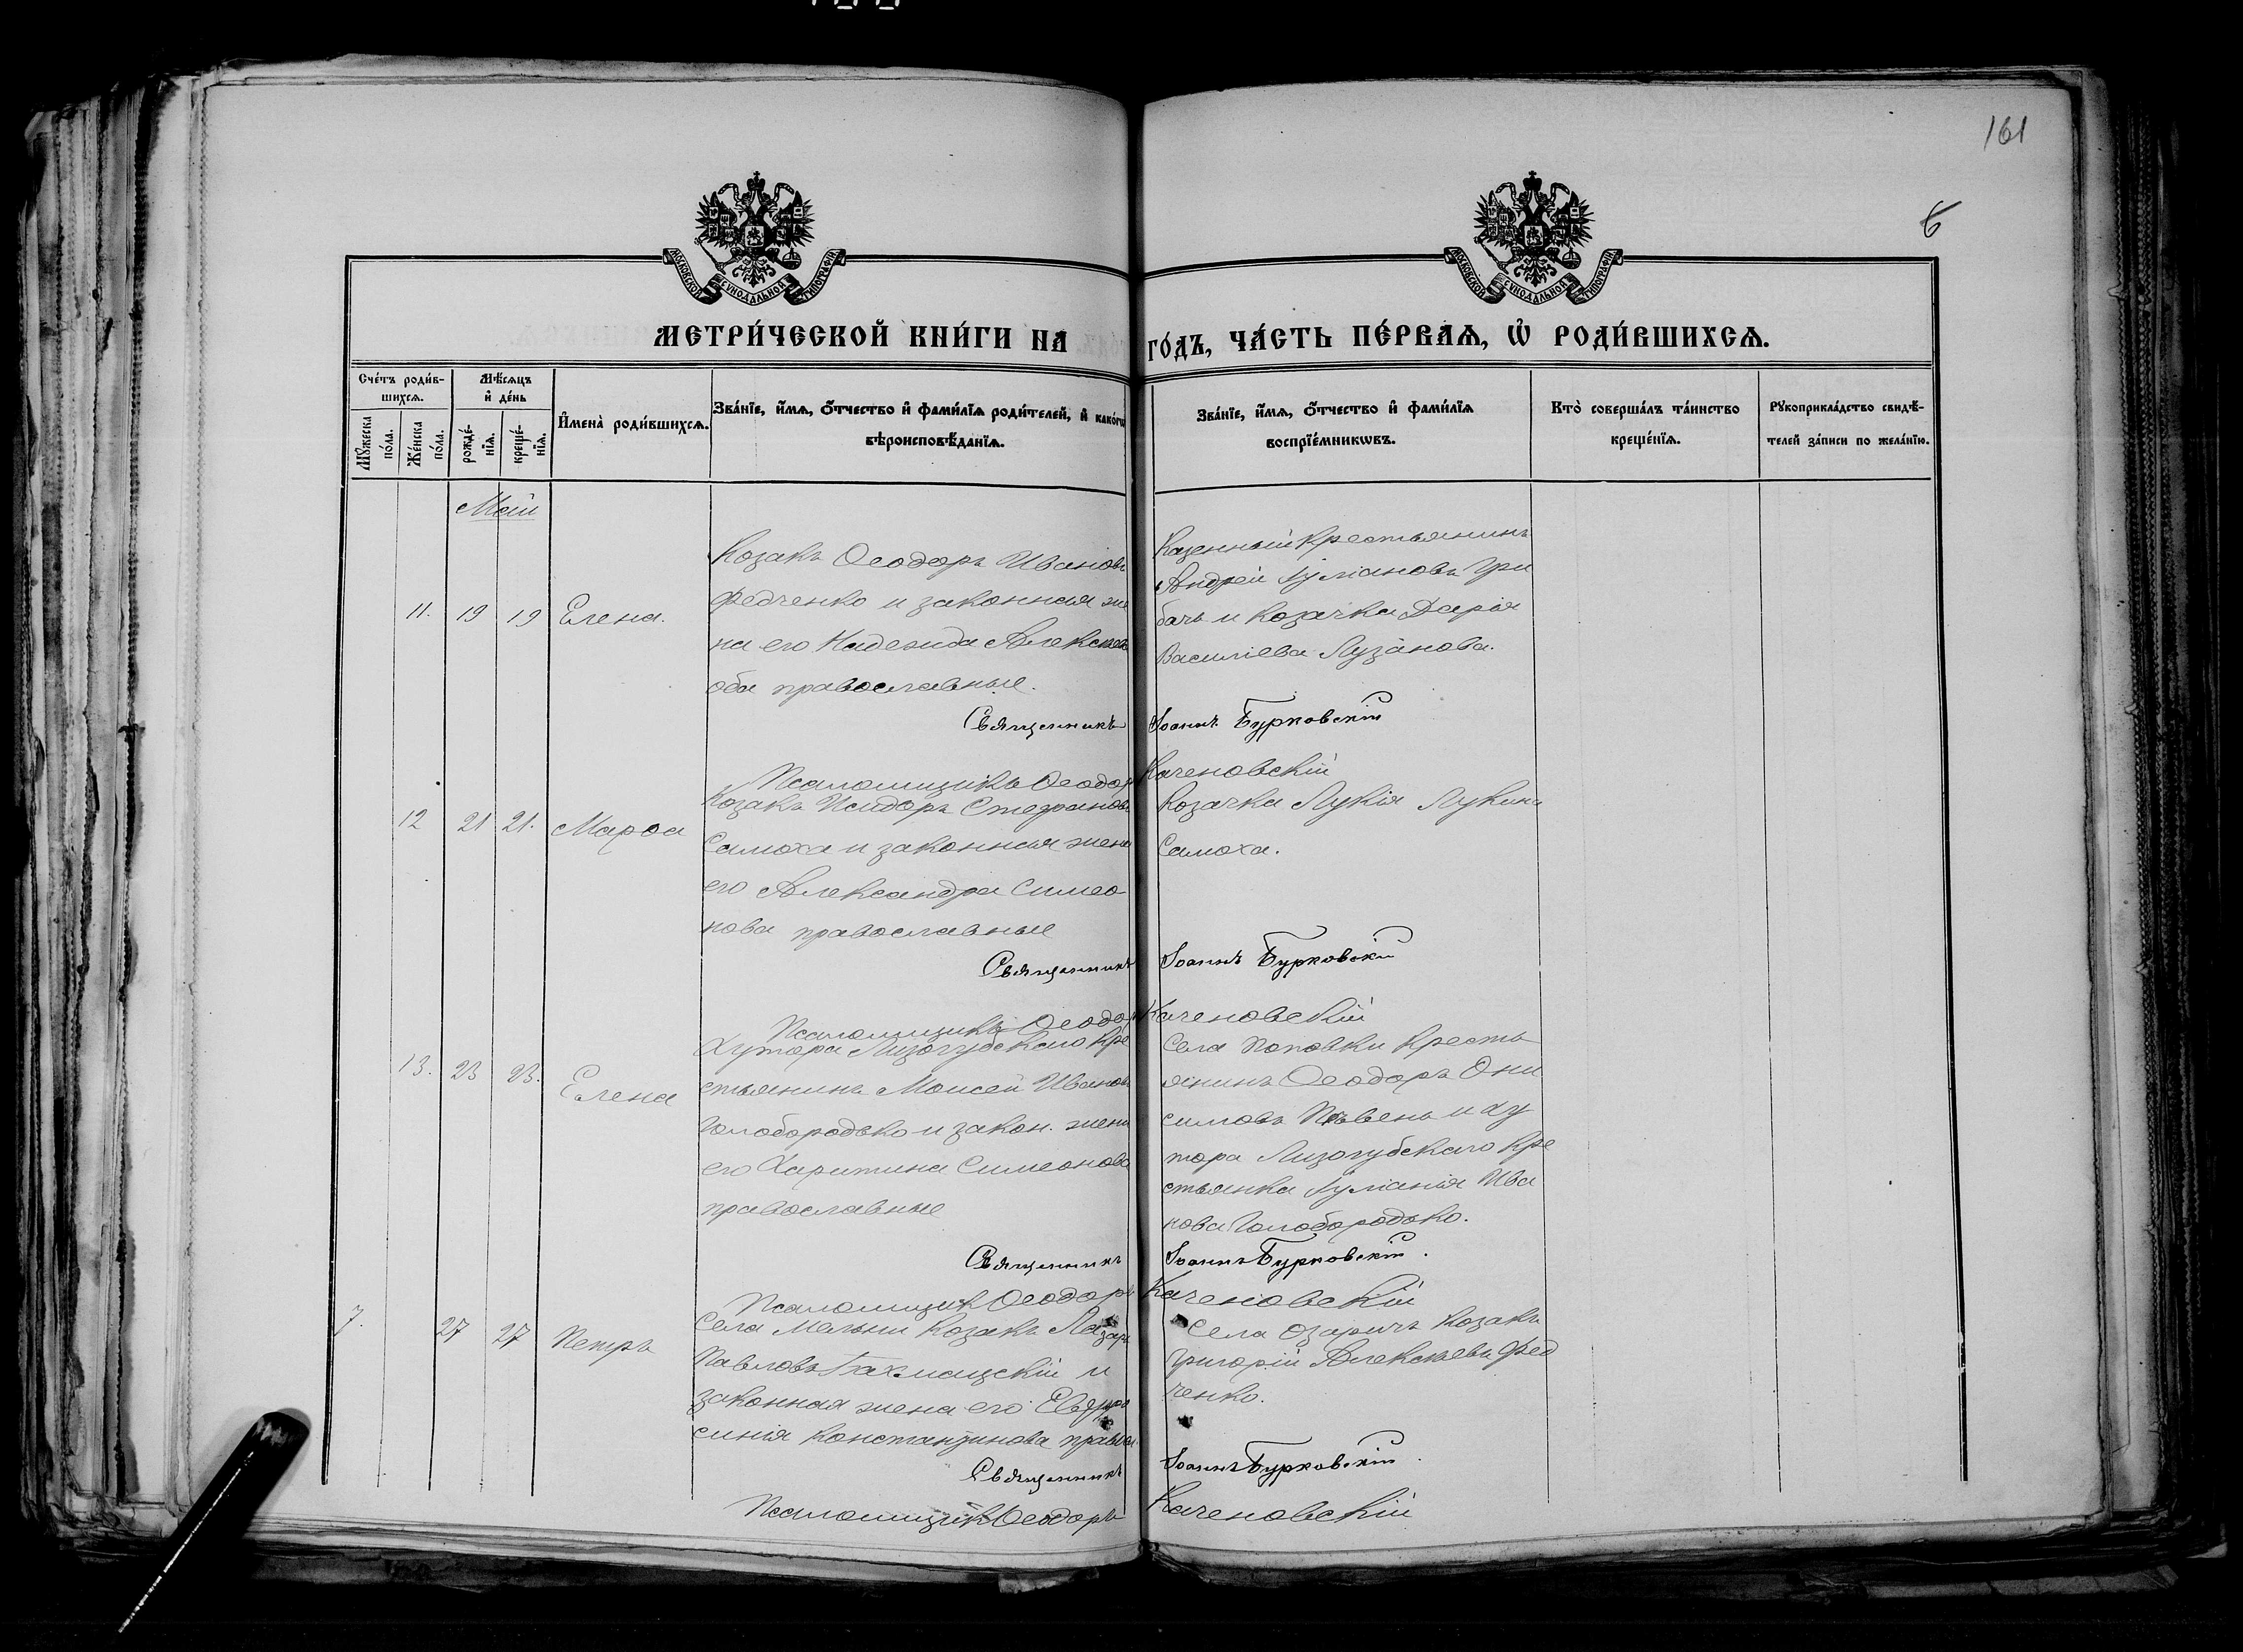 161
6
МОСКОВСКОЙ СѴНОДАЛЬНОЙ ТИПОГРАФІИ
МОСКОВСКОЙ СѴНОДАЛЬНОЙ ТИПОГРАФІИ
МЕТРИ́ЧЕСКОЙ КНИ́ГИ НА ГО́ДЪ, ЧА́СТЬ ПЕ́РВАѦ, Ѽ РОДИ́ВШИХСѦ.
Сче́тъ роди́в-
шихсѧ.
Мꙋ́жеска по́ла.
Же́нска по́ла.
Мѣ́сѧцъ
и҆ де́нь
рожде́-нїѧ.
креще́-нїѧ.
И҆мена̀ роди́вшихсѧ.
Зва́нїе, и҆́мѧ, ѻ҆́тчество и҆ фами́лїѧ роди́телей, и҆ како́гѡ
вѣроисповѣ́данїѧ.
Зва́нїе, и҆́мѧ, ѻ҆́тчество и҆ фами́лїѧ
воспрїе́мникѡвъ.
Кто̀ соверша́лъ та́инство
креще́нїѧ.
Рꙋкоприкла́дство свидѣ́-
телей за́писи по жела́нїю.
Май
11. 19 19 Елена.
Козакъ Ѳеодоръ Ивановъ
Федченко и законная же
на его Надежда Алексѣева
оба православные.
Казенный крестьянинъ
Андрей Іуліановъ Гри
бачъ и козачка Дарія
Василіева Лузанова.
Священникъ Іоаннъ Бурковскій
Псаломщикъ Ѳеодоръ Каченовскій
12 21 21. Марѳа
Козакъ Исидоръ Стефановъ
Самоха и законная жена
его Александра Симео
нова православные
Козачка Лукія Лукина
Самоха.
Священникъ Іоаннъ Бурковскій
Псаломщикъ Ѳеодоръ Каченовскій
13. 23 23. Елена
Хутора Лизогубскаго Кре
стьянинъ Моисей Ивановъ
Голобородько и закон. жена
его Харитина Симеонова
православные
Села Поповки Кресть
янинъ Ѳеодоръ Они
симовъ Пѣвень и ху
тора Лизогубскаго Кре
стьянка Іуліанія Ива
нова Голобородько.
Священникъ Іоаннъ Бурковскій.
Псаломщик Ѳеодоръ Каченовскій
7. 27 27 Петръ
Села Мельни Козакъ Лазарь
Павловъ Бахмацскій и
законная жена его Евфро
синія Константинова правосл.
Села Озаричъ козакъ
Григорій Алексѣевъ Фед
ченко.
Священникъ Іоаннъ Бурковскій.
Псаломщик Ѳеодоръ Каченовскій